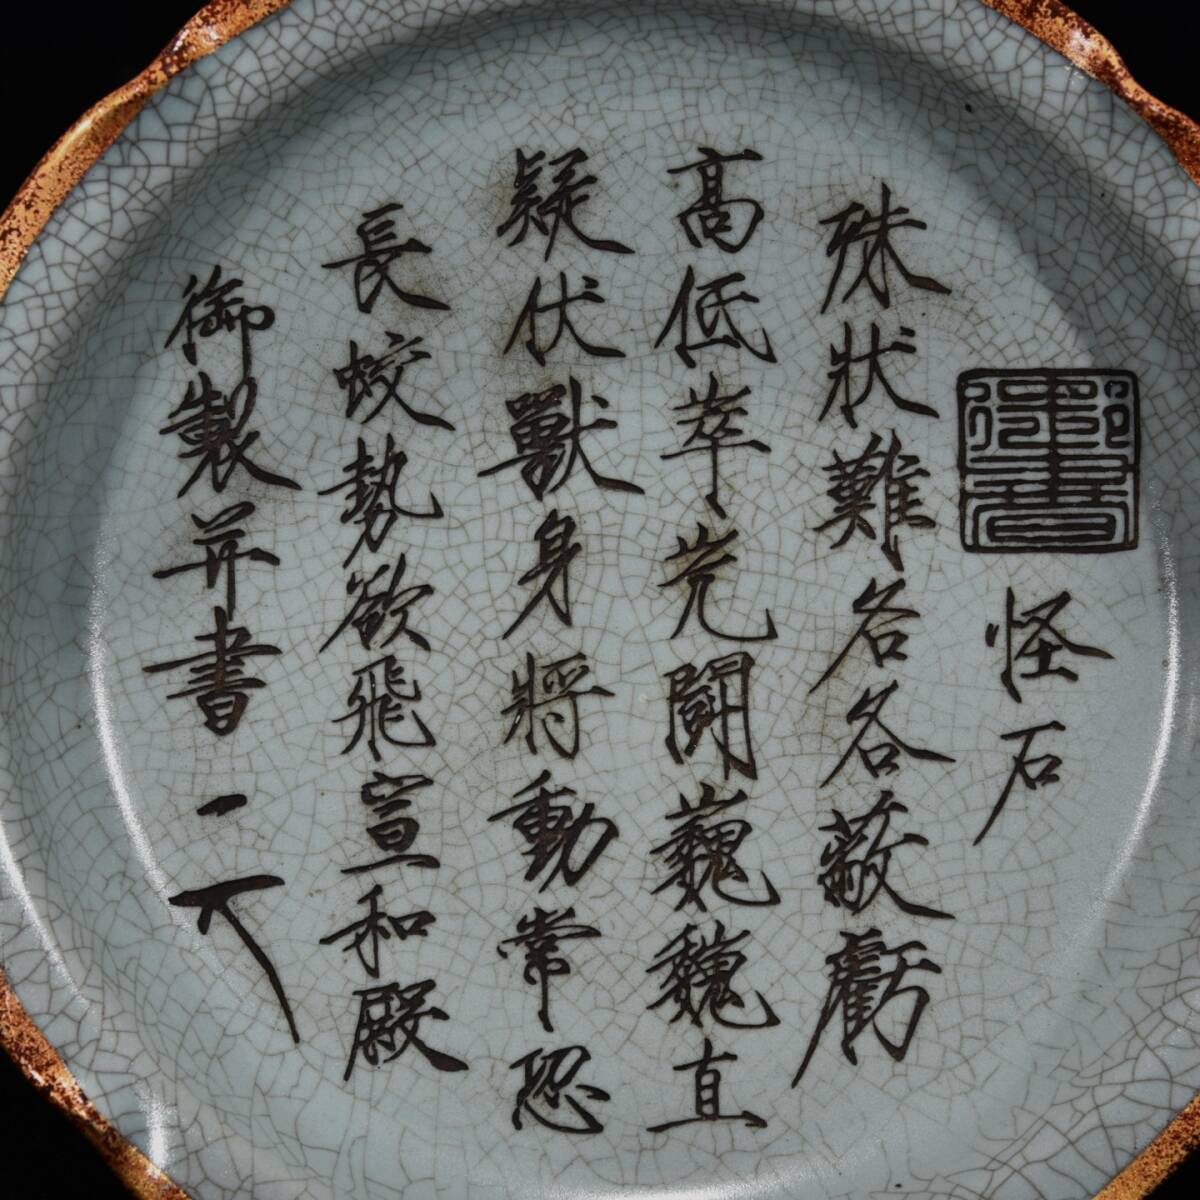 御書
怪石
殊狀難各各蔽虧
高低崒屼鬪巍巍直
疑伏獸身將動常恐
長蛟勢欲飛宣和殿
御製并書